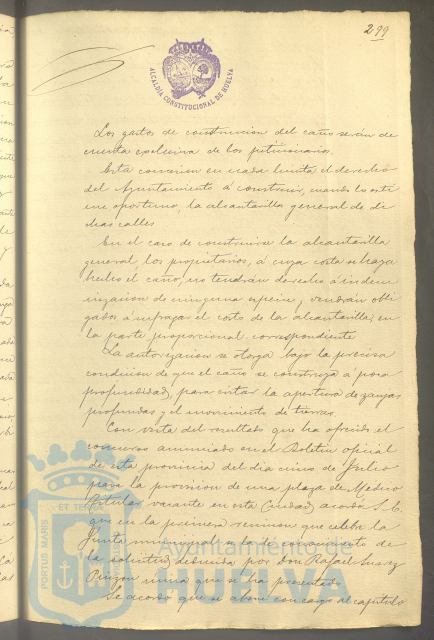 299
ALCALDIA CONSTITUCIONAL DE HUELVA
Los gastos de construccion del caño serán de
cuenta esclusiva de los peticionarios.
Esta concesion en nada limita el derecho
del Ayuntamiento á construir, cuando lo esti
me oportuno, la alcantarilla general de di
chas calles.
En el caso de construirse la alcantarilla
general los propietarios, á cuya costa se haya
hecho el caño, no tendrán derecho á indem
nizacion de ninguna especie, y vendrán obli
gados á sufragar el costo de la alcantarilla, en
la parte proporcional correspondiente.
La autorizacion se otorga bajo la precisa
condicion de que el caño se construya á poca
profundidad, para evitar la apertura de zanjas
profundas y el movimiento de tierras.
Con vista del resultado que ha ofrecido el
concurso anunciado en el Boletin oficial
de esta provincia del dia cinco de Julio
para la provision de una plaza de Medico
titular vacante en esta Ciudad, acordó S. E.
que en la primera reunion que celebre la
Junta municipal se le dé conocimiento de
la solicitud deducida por Don Rafael Suarez
Pinzon unica que se ha presentado.
Se acordó que se abone con cargo al capitulo
PORTUS MARIS ET TERRAE
Ayuntamiento de
HUELVA